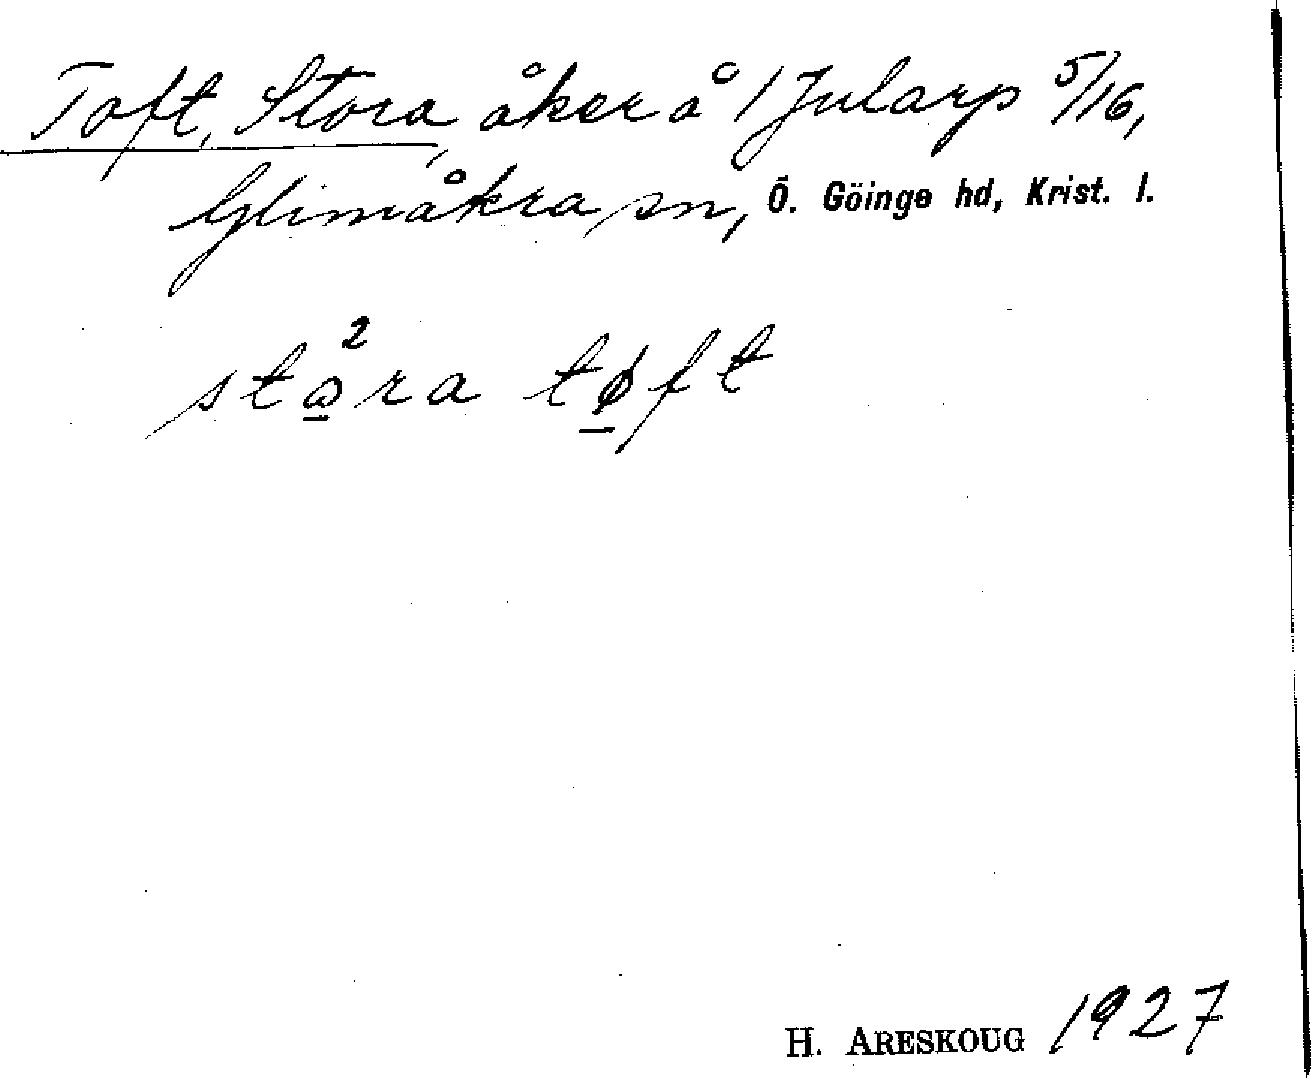 Toft, Stora, åker å 1 Jularp 5/16,
Glimåkra sn, Ö. Göinge hd, Krist. l.
stɷ²ra tøft
H. ARESKOUG 1927